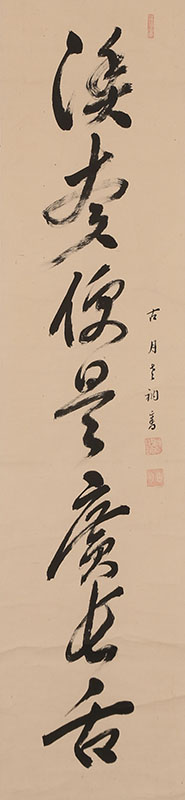 溪聲便是廣長舌
古月老衲書